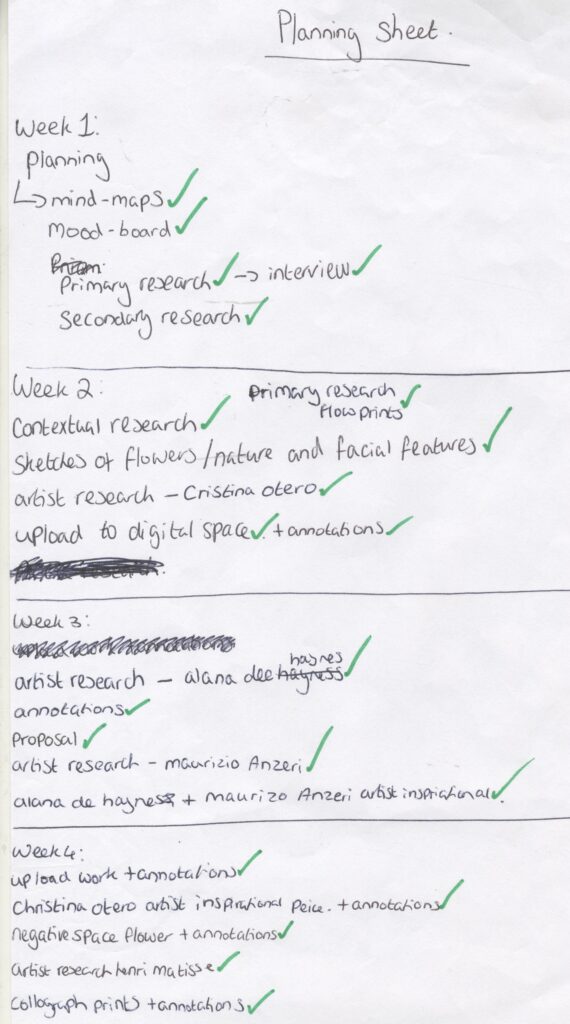 Planning sheet.
Week 1:
Planning
↳ mind-maps ✓
Mood-board ✓
Primary research ✓ → interview ✓
Secondary research ✓
Week 2:
Primary research ✓
flow prints
Contextual research ✓
Sketches of flowers/nature and facial features ✓
artist research - Cristina otero ✓
upload to digital space ✓. + annotations ✓
Week 3:
artist research - alana dee haynes ✓
annotations ✓
Proposal ✓
artist research - maurizio Anzeri ✓
alana de haynes + maurizo Anzeri artist inspriational ✓.
Week 4:
upload work + annotations ✓
Christina otero artist inspirational peice. + annotations ✓
negative space flower + annotations ✓
artist research henri matisse ✓
collograph prints + annotations ✓